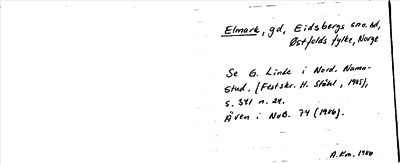 Elmark, gd, Eidsbergs sno. hd,
Østfolds fylke, Norge
Se G. Linde i Nord. Namn-
stud. (Festskr. H. Ståhl, 1985),
s. 341 n. 21.
Även i NoB. 74 (1986).
A.Km. 1980